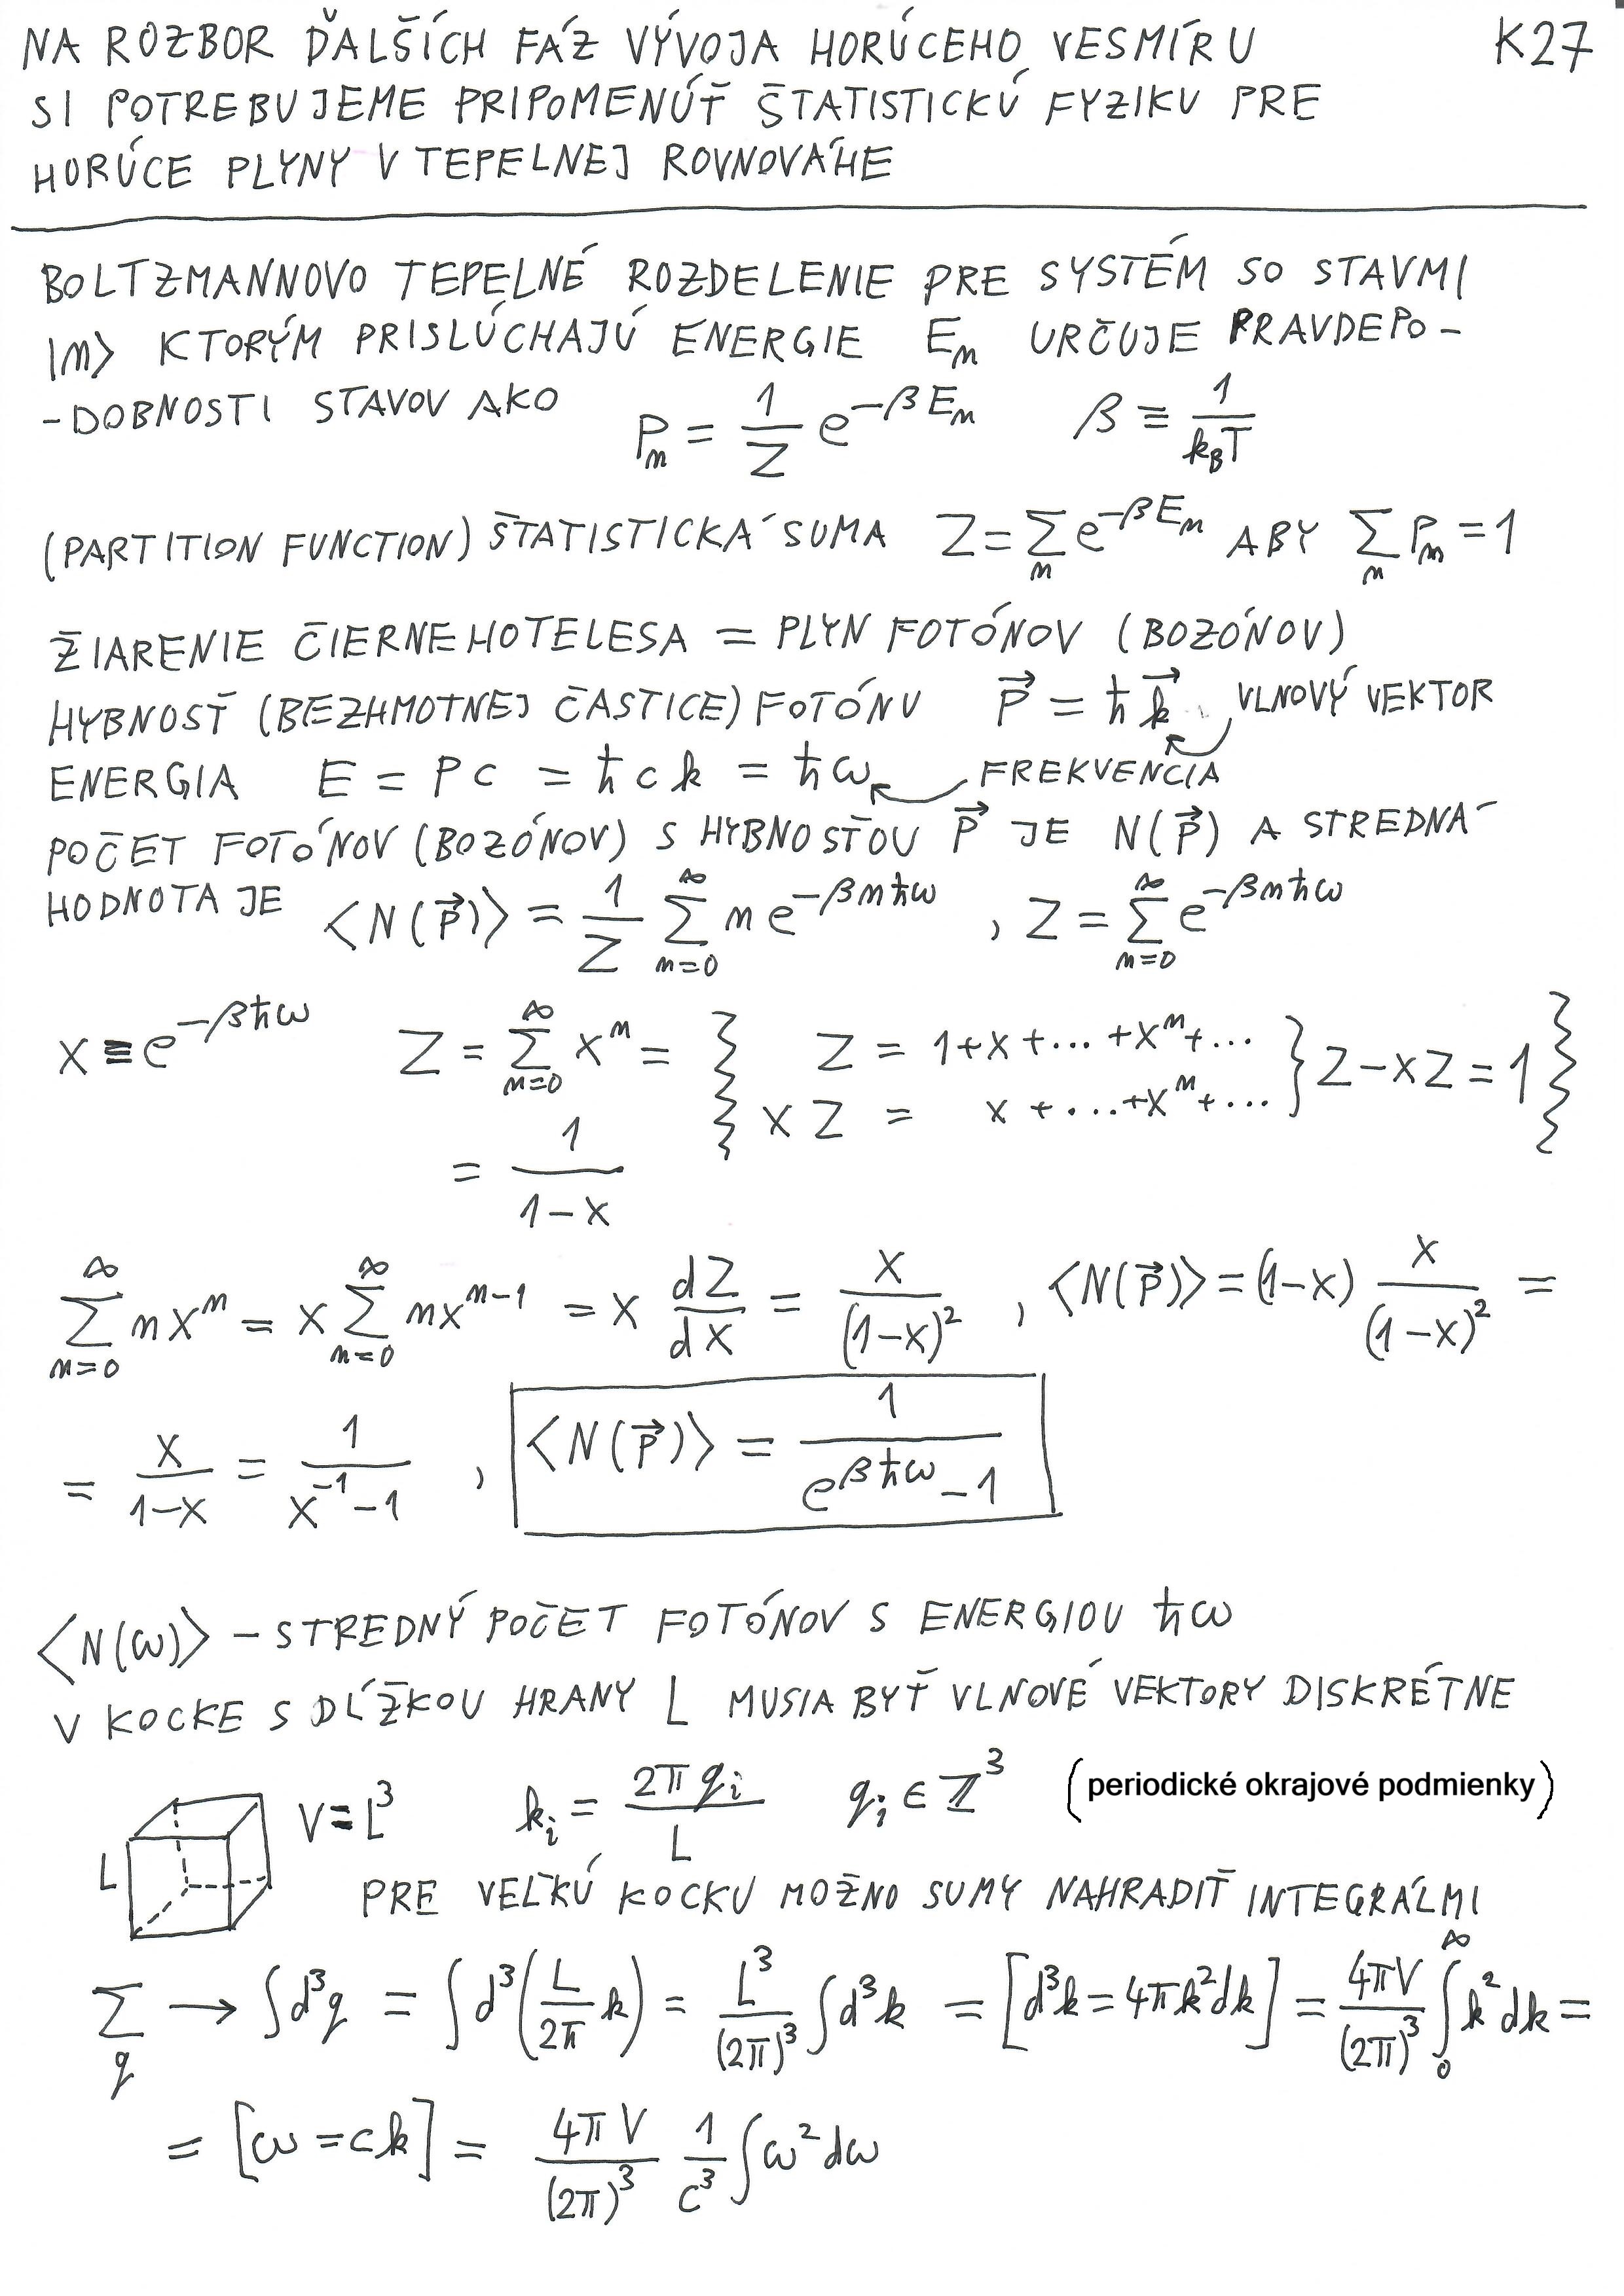 NA ROZBOR ĎALŠÍCH FÁZ VÝVOJA HORÚCEHO VESMÍRU K27
SI POTREBUJEME PRIPOMENÚŤ ŠTATISTICKÚ FYZIKU PRE
HORÚCE PLYNY V TEPELNEJ ROVNOVÁHE
BOLTZMANNOVO TEPELNÉ ROZDELENIE PRE SYSTÉM SO STAVMI
|n⟩ KTORÝM PRISLÚCHAJÚ ENERGIE Eₙ URČUJE PRAVDEPO-
-DOBNOSTI STAVOV AKO Pₙ = 1/Z e^(-βEₙ) β ≡ 1/(k_B T)
(PARTITION FUNCTION) ŠTATISTICKÁ SUMA Z = ∑ₙ e^(-βEₙ) ABY ∑ₙ Pₙ = 1
ŽIARENIE ČIERNEHO TELESA = PLYN FOTÓNOV (BOZÓNOV)
HYBNOSŤ (BEZHMOTNEJ ČASTICE) FOTÓNU p⃗ = ħk⃗ VLNOVÝ VEKTOR
ENERGIA E = Pc = ħck = ħω FREKVENCIA
POČET FOTÓNOV (BOZÓNOV) S HYBNOSŤOU p⃗ JE N(p⃗) A STREDNÁ
HODNOTA JE ⟨N(p⃗)⟩ = 1/Z ∑_{n=0}^∞ n e^(-βnħω) , Z = ∑_{n=0}^∞ e^(-βnħω)
x ≡ e^(-βħω) Z = ∑_{n=0}^∞ xⁿ = { Z = 1+x+...+xⁿ+... } Z-xZ = 1 }
xZ = x+...+xⁿ+...
= 1/(1-x)
∑_{n=0}^∞ nxⁿ = x ∑_{n=0}^∞ nx^(n-1) = x dZ/dx = x/(1-x)² , ⟨N(p⃗)⟩ = (1-x) x/(1-x)² =
= x/(1-x) = 1/(x⁻¹-1) , ⟨N(p⃗)⟩ = 1/(e^(βħω)-1)
⟨N(ω)⟩ - STREDNÝ POČET FOTÓNOV S ENERGIOU ħω
V KOCKE S DĹŽKOU HRANY L MUSIA BYŤ VLNOVÉ VEKTORY DISKRÉTNE
L V ≡ L³ kᵢ = 2πqᵢ/L qᵢ ∈ ℤ³ (periodické okrajové podmienky)
PRE VEĽKÚ KOCKU MOŽNO SUMY NAHRADIŤ INTEGRÁLMI
∑_q → ∫d³q = ∫d³(L/2π k) = L³/(2π)³ ∫d³k = [d³k = 4πk²dk] = 4πV/(2π)³ ∫₀^∞ k²dk =
= [ω = ck] = 4πV/(2π)³ 1/c³ ∫ω²dω